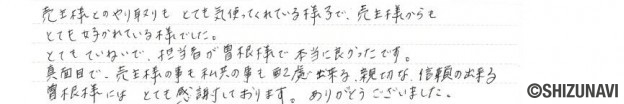 売主様とのやり取りも とても気使ってくれている様子で、売主様からも
とても好かれている様子でした。
とてもていねいで、担当者が曽根様で本当に良かったです。
真面目で、売主様の事も私共の事も配慮出来る、親切な、信頼の出来る
曽根様には とても感謝しております。ありがとうございました。
©SHIZUNAVI